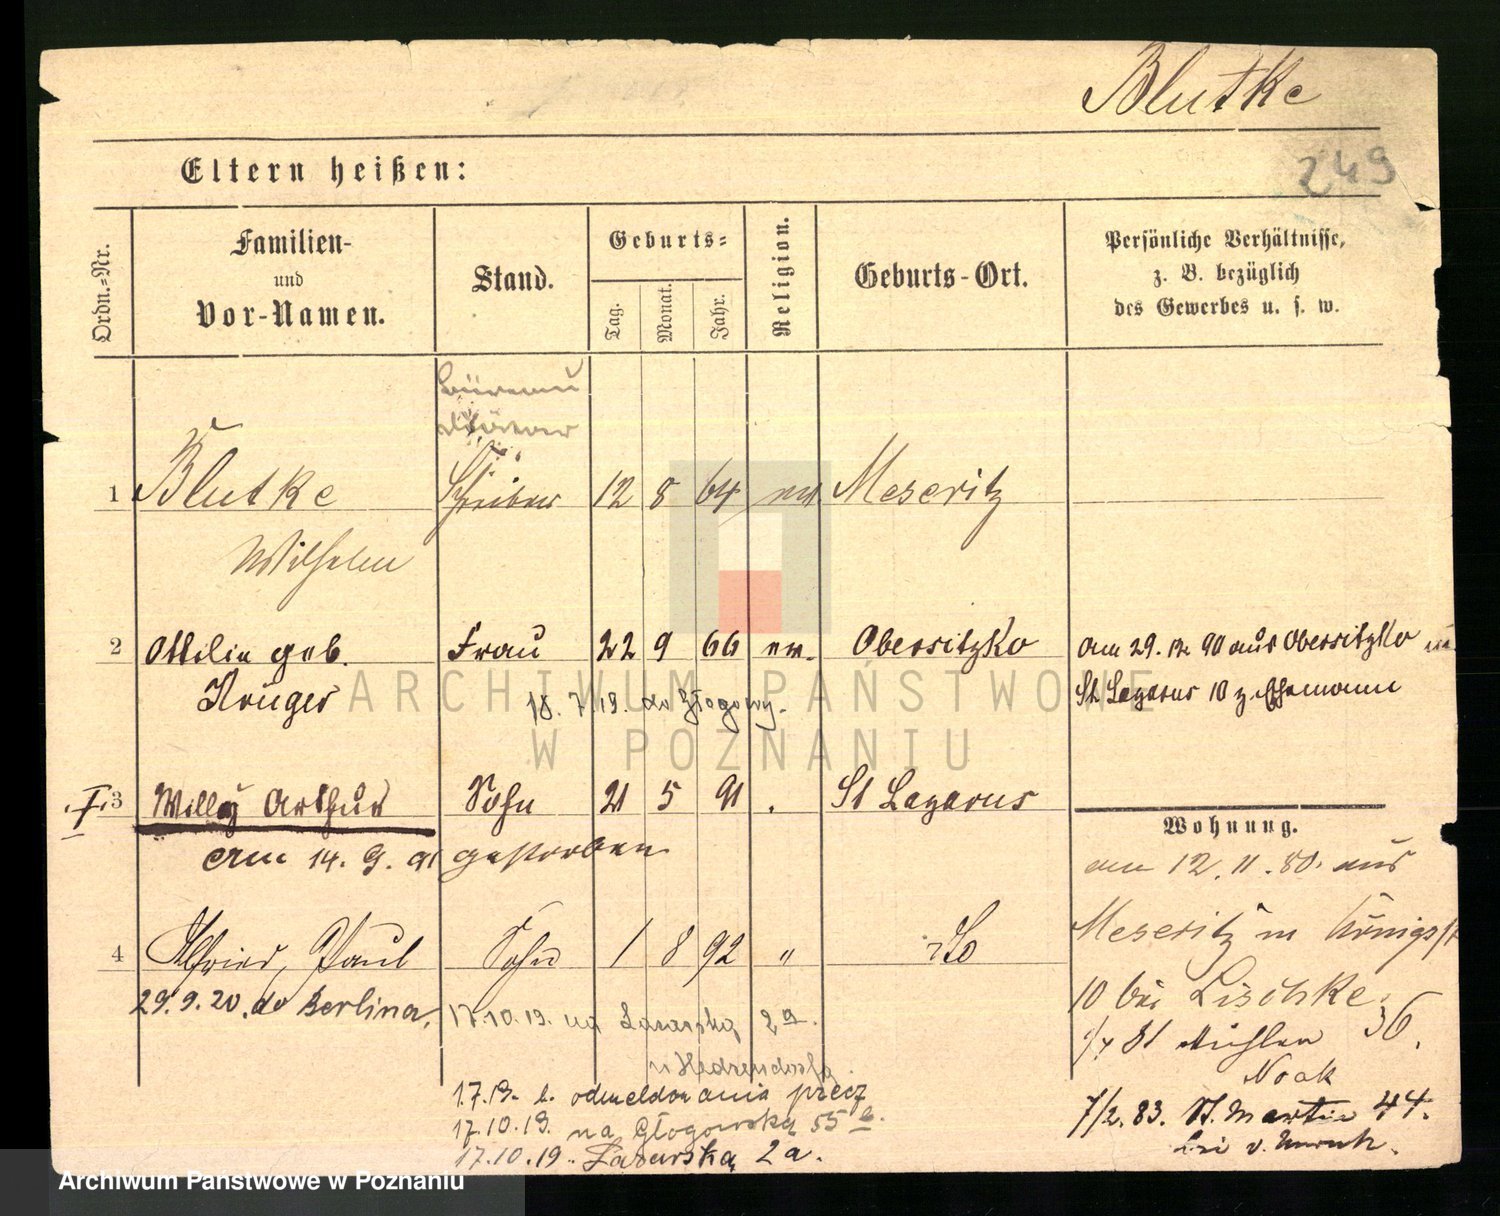 Blutke
249
Eltern heißen:
Ordn.=Nr.
Familien-
und
Vor-Namen.
Stand.
Geburts=
Tag.
Monat.
Jahr.
Religion.
Geburts-Ort.
Persönliche Verhältnisse,
z. B. bezüglich
des Gewerbes u. s. w.
Büreau
1 Blutke Schreiber 12 8 64 ev Meseritz
Wilhelm
2 Ottilie geb. Frau 22 9 66 ev. Obersitzko am 29. 12 90 aus Obersitzko
Krüger
St Lazarus 10 z. Ehemann
18. 7. 19. do Głogowy.
3 Willy Arthur Sohn 21 5 91 St Lazarus
am 14. 9. 91 gestorben
Wohnung.
am 12. 11. 80. aus
Meseritz in Königsstr
10 bei Lischke.
4 Alfried, Paul Sohn 1 8 92 " do
29. 9. 20. do Berlina.
17.10.19. na Łazarską 2a.
81 Mühlen 36.
Noak
1.7.19. odmeldowania precz
17.10.19. na Głogowską 55
17.10.19. Łazarską 2a.
7/2. 83. St. Martin 44.
bei v.
ARCHIWUM PAŃSTWOWE
W POZNANIU
Archiwum Państwowe w Poznaniu